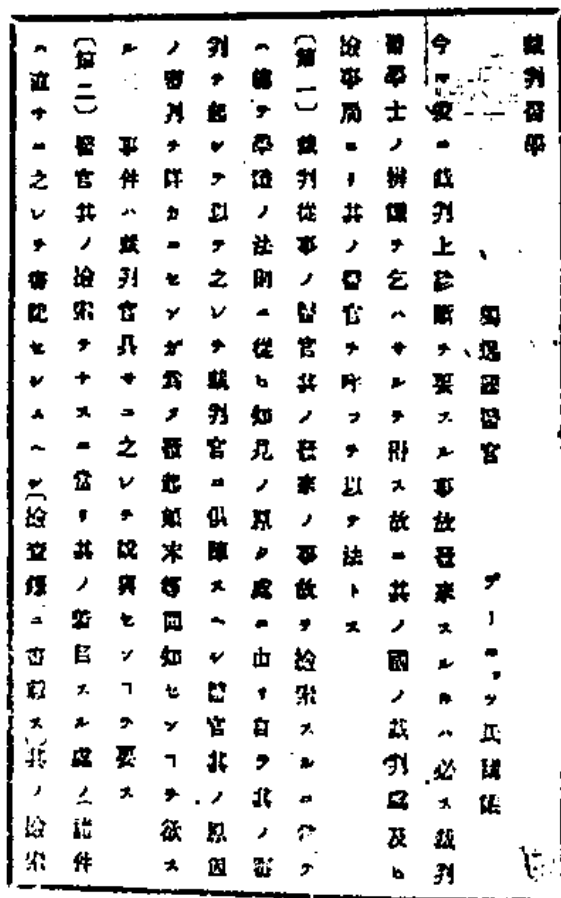 裁判醫學
獨逸國醫官 デーニッツ氏講談
今茲ニ裁判上診斷ヲ要スル事故發來スルキハ必ス裁判
醫學士ノ辨護ヲ乞ハサルヲ得ス故ニ其ノ國ノ裁判處及ヒ
撿事局ヨリ其ノ醫官ヲ呼フヲ以テ法トス
(第一)裁判從事ノ醫官其ノ發來ノ事故ヲ撿索スルニ當テ
ハ總テ學識ノ法則ニ從ヒ如見ノ原ク處ニ由リ自ラ其ノ審
判ヲ起シテ以テ之レヲ裁判官ニ供陳スヘシ醫官其ノ原因
ノ審判ヲ詳カニセンガ爲メ發起顛末等同知センヿヲ欲ス
ル 事件ハ裁判官具サニ之レヲ說與センヿヲ要ス
(第二)醫官其ノ撿索ヲナスニ當リ其ノ著目スル處ノ諸件
ハ直サニ之レヲ書記セシムヘシ(撿査錄ニ書載ス)其ノ撿索